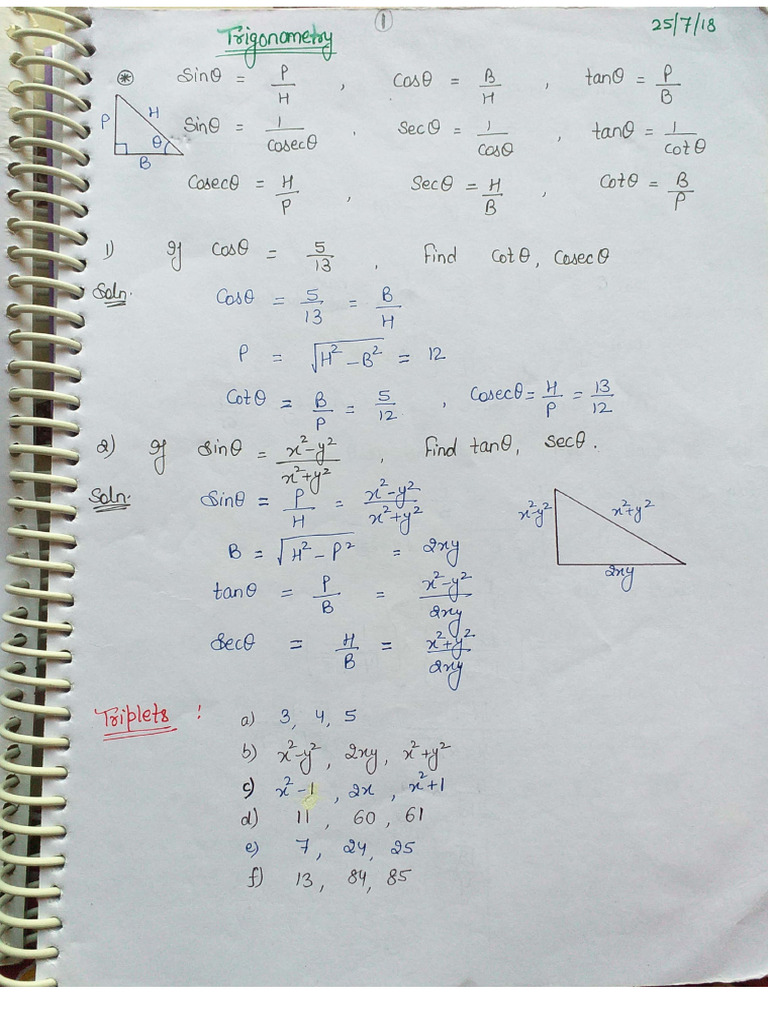 ①
25/7/18
Trigonometry
⊛ Sinθ = P/H , Cosθ = B/H , tanθ = P/B
P H θ B
Sinθ = 1/Cosecθ , Secθ = 1/Cosθ , tanθ = 1/Cotθ
Cosecθ = H/P , Secθ = H/B , Cotθ = B/P
1) If Cosθ = 5/13 , Find Cotθ, Cosecθ
Soln. Cosθ = 5/13 = B/H
P = √(H² - B²) = 12
Cotθ = B/P = 5/12 , Cosecθ = H/P = 13/12
2) If Sinθ = x²-y²/x²+y² , Find tanθ, Secθ.
Soln. Sinθ = P/H = x²-y²/x²+y²
x²-y² x²+y² 2xy
B = √(H² - P²) = 2xy
tanθ = P/B = x²-y²/2xy
Secθ = H/B = x²+y²/2xy
Triplets : a) 3, 4, 5
b) x²-y², 2xy, x²+y²
c) x²-1, 2x, x²+1
d) 11, 60, 61
e) 7, 24, 25
f) 13, 84, 85